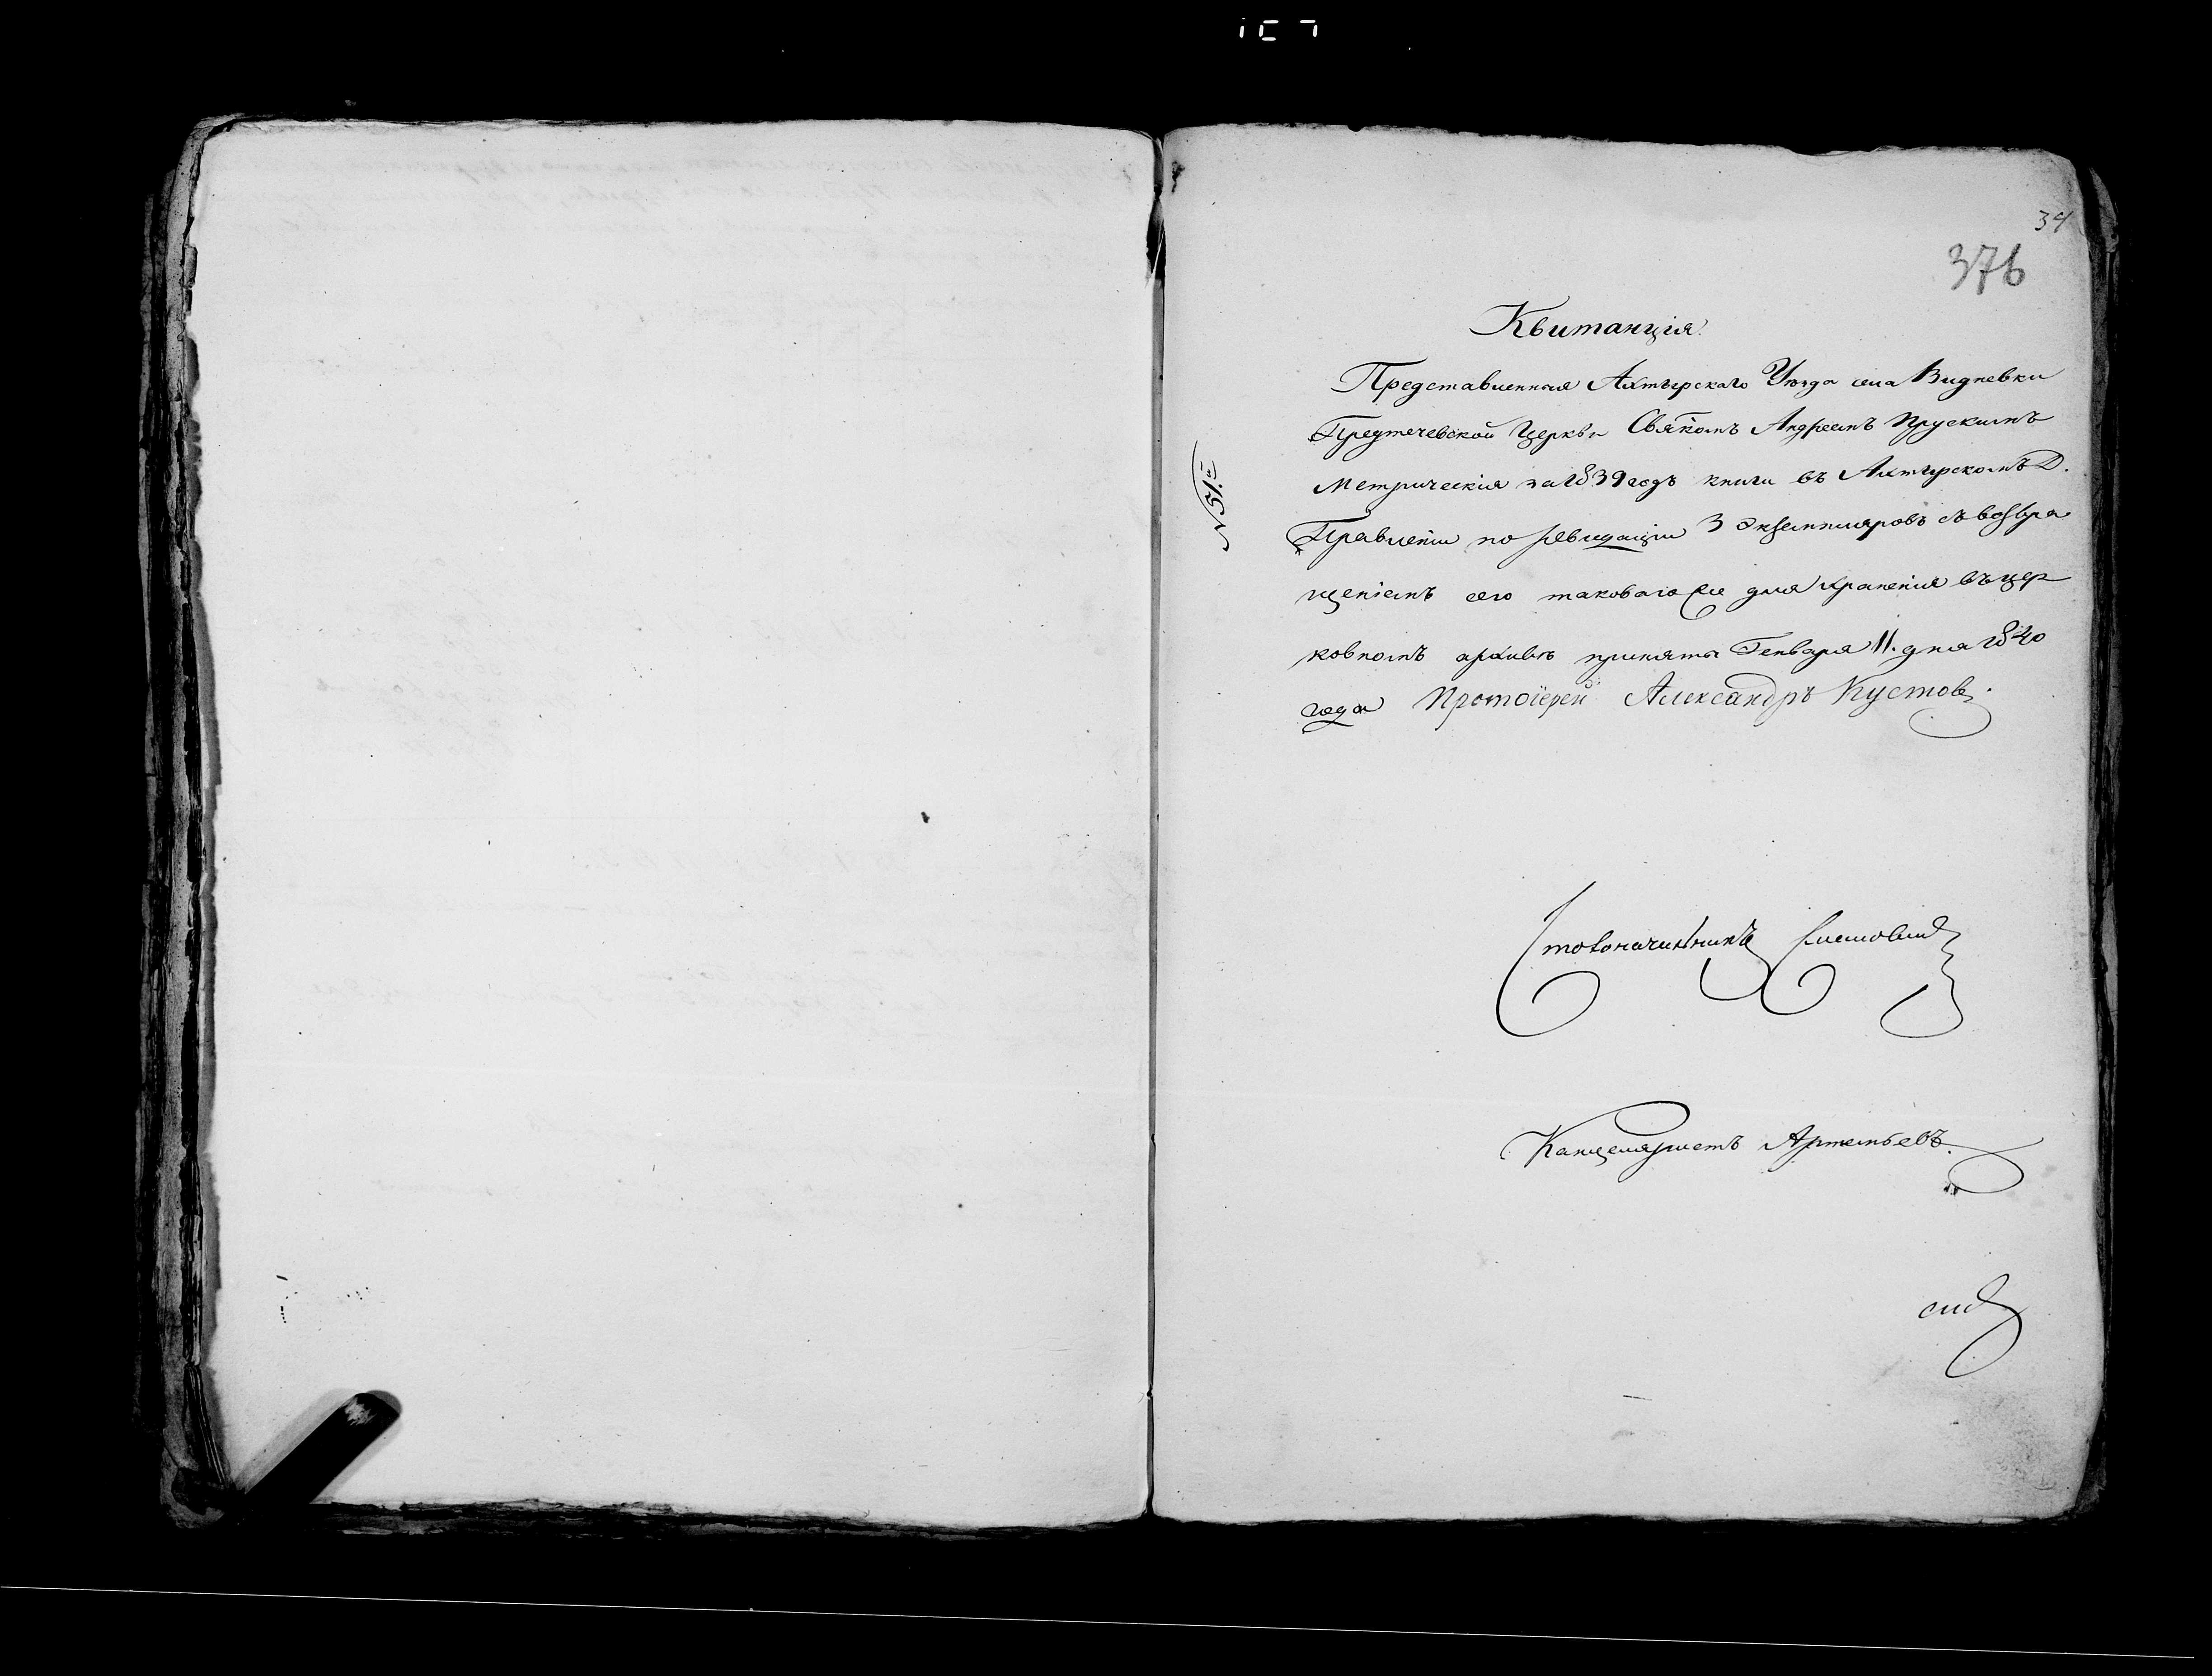 34
376
Квитанція.
Представленныя Ахтырскаго Уѣзда села Видневки
Предтечевской Церкви Свя҃комъ Андреемъ Прускимъ
Метрическія за 1839 годъ книги въ Ахтырскомъ Д.
№ 51.й
Правленіи по ревидаціи 3 экземпляровъ съ возвра
щеніемъ сего таковаго же для храненія въ цер
ковномъ архивѣ приняты Генваря 11. дня 1840
года Протоіерей Александръ Кустов.
Столоначальникъ
Канцеляристъ Артемьевъ.